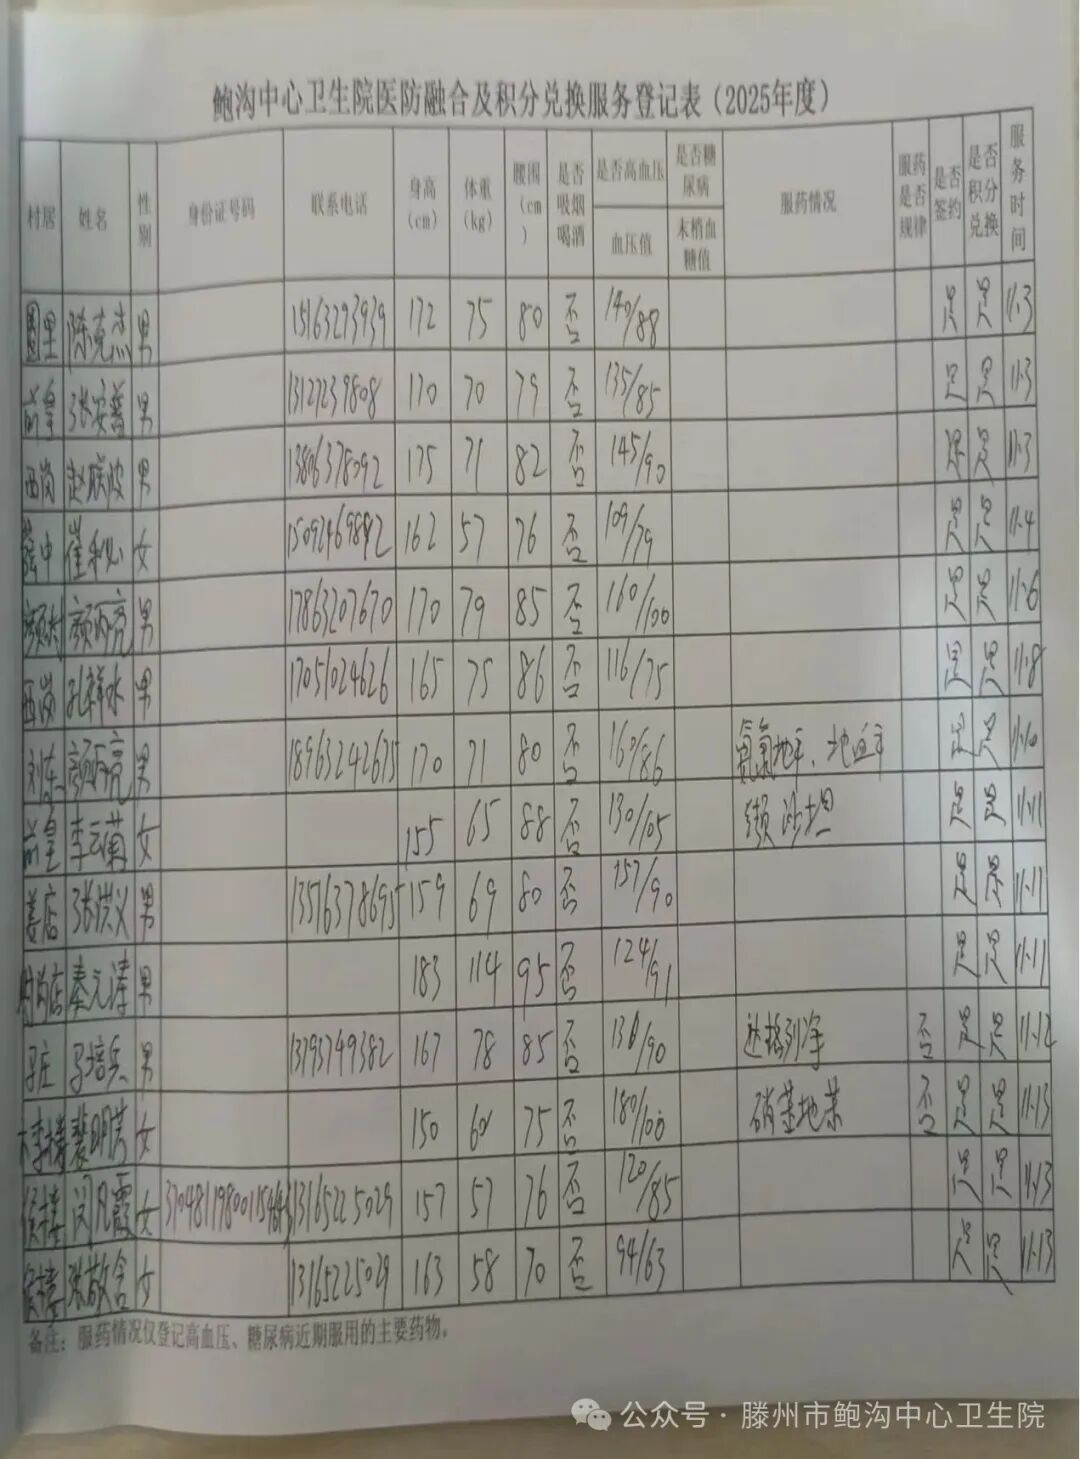 鲍沟中心卫生院医防融合及积分兑换服务登记表（2025年度）
村居 姓名 性别 身份证号码 联系电话 身高(cm) 体重(kg) 腰围(cm) 是否吸烟喝酒 是否高血压 血压值 是否糖尿病 末梢血糖值 服药情况 服药是否规律 是否签约 是否积分兑换 服务时间
圈里 陈克杰 男 15163293939 172 75 80 否 140/88 是 是 11.3
前皇 张安 男 13127239808 170 70 79 否 135/85 是 是 11.3
西岗 赵 男 13806378092 175 71 82 否 145/90 是 11.3
中 崔 女 162 57 76 否 109/79 是 是 11.4
颜村 颜 亮 男 17863207670 170 79 85 否 160/100 是 是 11.6
西岗 孔祥水 男 17051024626 165 75 86 否 116/75 是 是 11.8
刘东 颜 亮 男 18963242675 170 71 80 否 160/86 氨氯地平、地 平 是 是 11.10
前皇 李云菊 女 155 65 88 否 130/105 缬沙坦 是 是 11.11
姜店 张洪义 男 13516378695 159 69 80 否 157/90 是 是 11.11
店 秦元涛 男 183 114 95 否 124/91 是 是 11.11
庄 培兵 男 13793749382 167 78 85 否 /90 达格列净 否 是 是 11.12
李楼 明 女 150 60 75 否 180/100 硝苯地平 否 是 是 11.13
侯楼 闵凡霞 女 13165225029 157 57 76 否 120/85 是 是 11.13
侯楼 张敬含 女 13165225029 163 58 70 否 94/63 是 是 11.13
备注：服药情况仅登记高血压、糖尿病近期服用的主要药物。
公众号 · 滕州市鲍沟中心卫生院